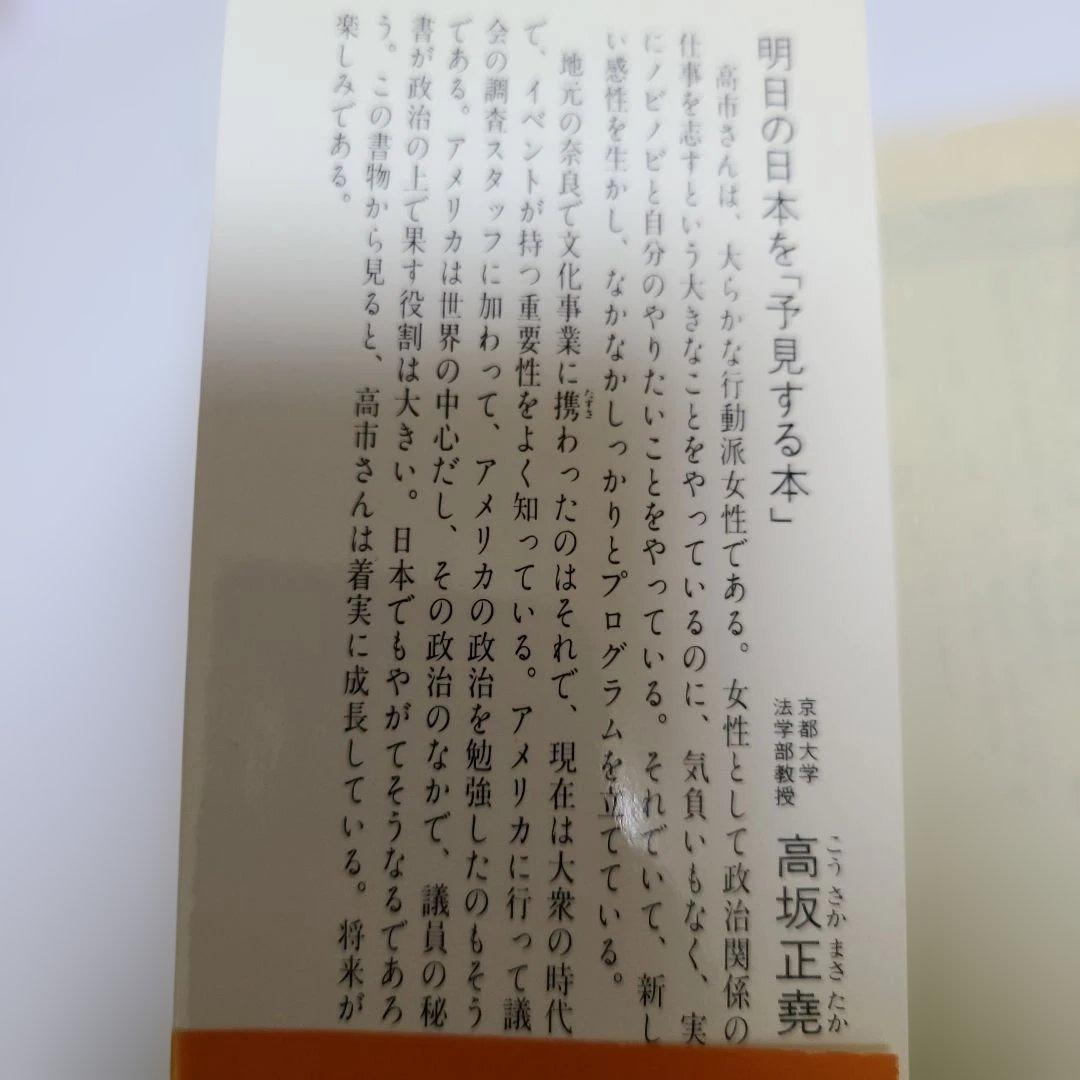 明日の日本を「予見する本」
京都大学
法学部教授
高坂正堯
こうさかまさたか
高市さんは、大らかな行動派女性である。女性として政治関係の
仕事を志すという大きなことをやっているのに、気負いもなく、実
にノビノビと自分のやりたいことをやっている。それでいて、新し
い感性を生かし、なかなかしっかりとプログラムを立てている。
地元の奈良で文化事業に携わったのはそれで、現在は大衆の時代
たずさ
で、イベントが持つ重要性をよく知っている。アメリカに行って議
会の調査スタッフに加わって、アメリカの政治を勉強したのもそう
である。アメリカは世界の中心だし、その政治のなかで、議員の秘
書が政治の上で果す役割は大きい。日本でもやがてそうなるであろ
う。この書物から見ると、高市さんは着実に成長している。将来が
楽しみである。